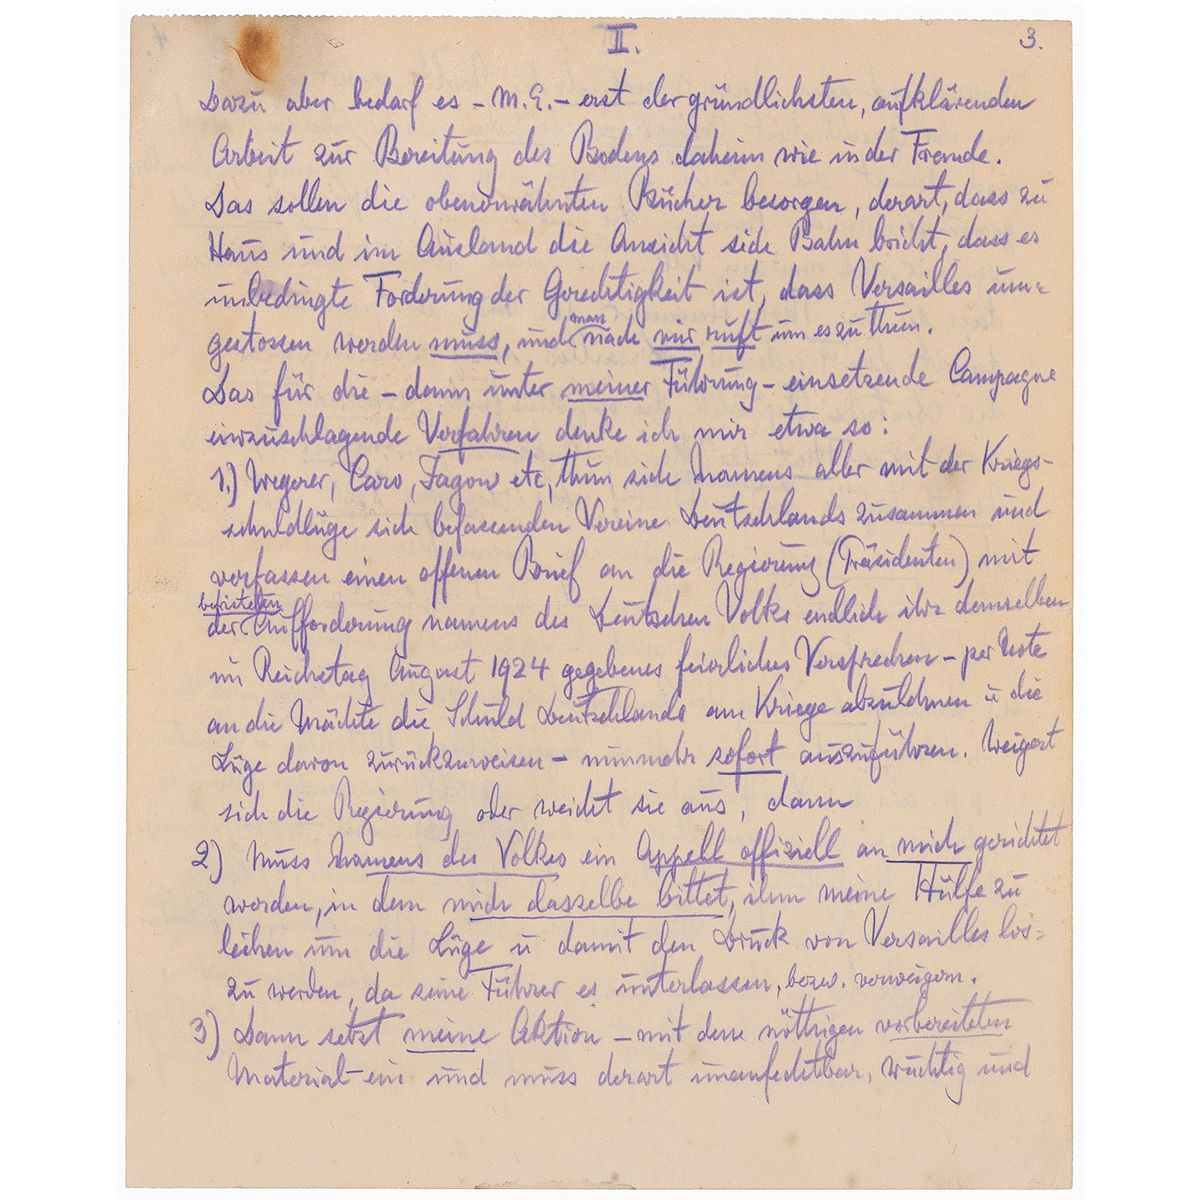 II.
3.
Dazu aber bedarf es – M.E. – erst der gründlichsten, aufklärenden
Arbeit zur Bereitung des Bodens daheim wie in der Fremde.
Das sollen die obenerwähnten Bücher besorgen, derart, dass zu
Haus und im Ausland die Ansicht sich Bahn bricht, dass es
unbedingte Forderung der Gerechtigkeit ist, dass Versailles um=
gestossen werden muss, und man nach mir ruft um es zu thun.
Das für die – dann unter meiner Führung – einsetzende Campagne
einzuschlagende Verfahren denke ich mir etwa so:
1.) Wegerer, Caro, Jagow etc, thun sich Namens aller mit der Kriegs-
schuldlüge sich befassenden Vereine Deutschlands zusammen und
verfassen einen offenen Brief an die Regierung (Präsidenten) mit
der befristeten Aufforderung namens des Deutschen Volks endlich ihr demselben
im Reichstag August 1924 gegebenes feierliches Versprechen – per Note
an die Mächte die Schuld Deutschlands am Kriege abzulehnen u die
Lüge davon zurückzuweisen – nunmehr sofort auszuführen. Weigert
sich die Regierung oder weicht sie aus, dann
2) Muss Namens des Volkes ein Appell offiziell an mich gerichtet
werden, in dem mich dasselbe bittet, ihm meine Hülfe zu
leihen um die Lüge u damit den Druck von Versailles los=
zu werden, da seine Führer es unterlassen, bezw. verweigern.
3) Dann setzt meine Aktion – mit dem nöthigen vorbereiteten
Material – ein und muss derart unanfechtbar, wuchtig und